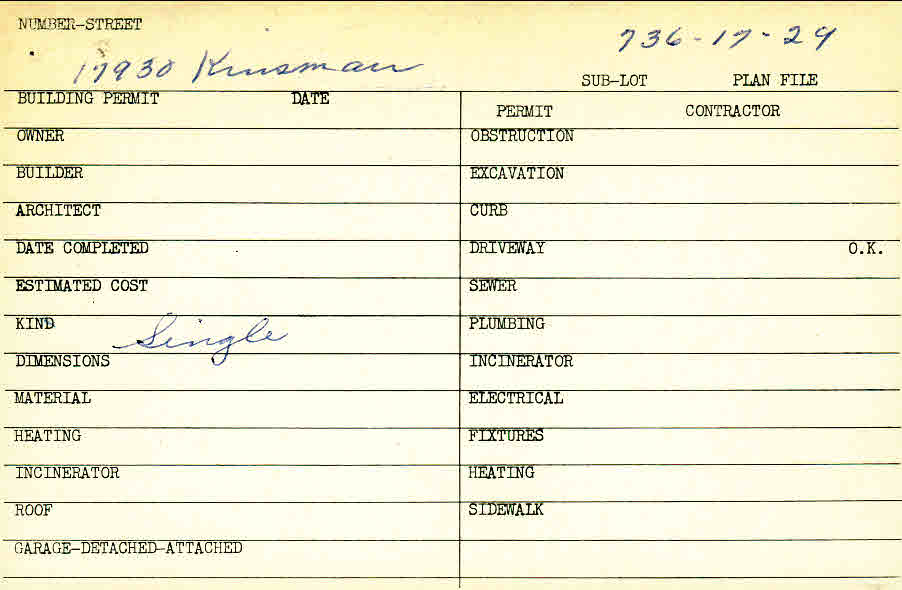 NUMBER-STREET
736-17-29
17930 Kinsman
SUB-LOT PLAN FILE
BUILDING PERMIT DATE
PERMIT CONTRACTOR
OWNER
OBSTRUCTION
BUILDER
EXCAVATION
ARCHITECT
CURB
DATE COMPLETED
DRIVEWAY O.K.
ESTIMATED COST
SEWER
KIND Single
PLUMBING
DIMENSIONS
INCINERATOR
MATERIAL
ELECTRICAL
HEATING
FIXTURES
INCINERATOR
HEATING
ROOF
SIDEWALK
GARAGE-DETACHED-ATTACHED